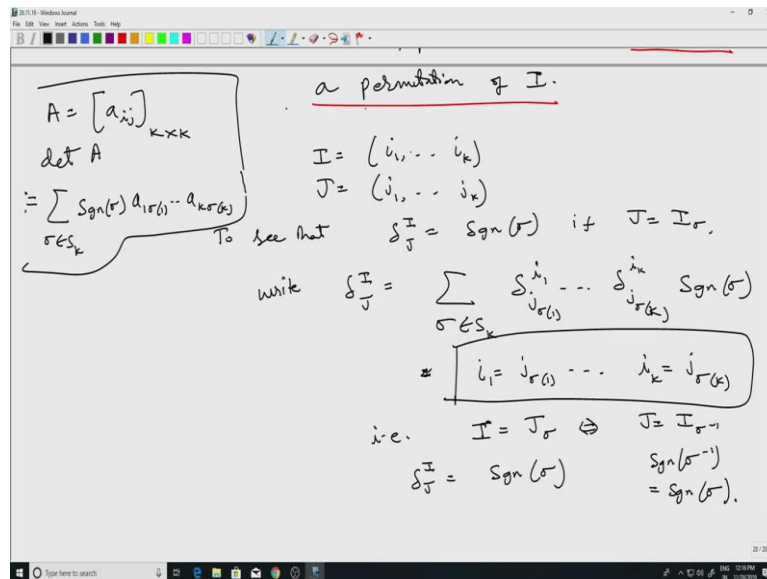 26.11.19 - Windows Journal
File Edit View Insert Actions Tools Help
a permutation of I.
A = [a_{ij}]_{K×K}
det A
:= ∑_{σ∈S_k} Sgn(σ) a_{1σ(1)} ... a_{Kσ(K)}
I = (i_1, ... i_k)
J = (j_1, ... j_k)
To see that δ^I_J = Sgn(σ) if J = I_σ.
write δ^I_J = ∑_{σ∈S_k} δ^{i_1}_{j_{σ(1)}} ... δ^{i_k}_{j_{σ(k)}} Sgn(σ)
i_1 = j_{σ(1)} --- i_k = j_{σ(k)}
i.e. I = J_σ ⇔ J = I_{σ^{-1}}
δ^I_J = Sgn(σ) Sgn(σ^{-1})
= Sgn(σ).
20/20
Type here to search
ENG 12:16 PM
IN 11/28/2019